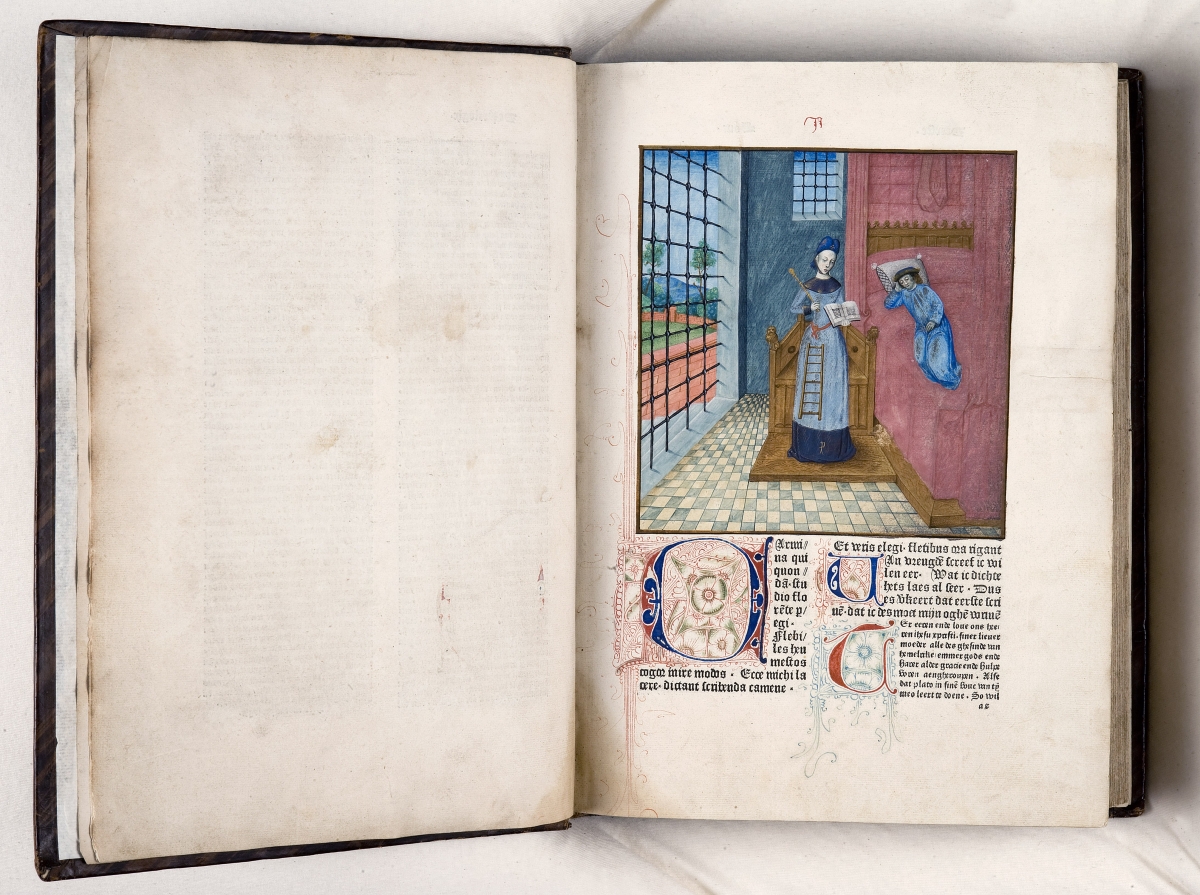 Carmi/
na qui
quon/
dā. stu
dio flo
rēte p/
egi.
Flebi/
les heu
mestos
cogor inire modos. Ecce michi la
cere. dictant scribenda camene.
Et veris elegi. fletibus ora rigant
An vreugdē screef ic wi
len eer. Wat ic dichte
hets laes al seer. Dus
es vkeert dat eerste scri
uē. dat ic des moet mijn oghē wriuē
Ter eeren ende loue ons hee-
ren ihesu xpristi. sijner lieuer
moeder alle des ghesinds van
hemelrike. emmer gods ende
harer alder gracie ende hulpe
voren aengheroupen. Alse
dat plato in sinē bouc van ty
meo leert te doene. So wil